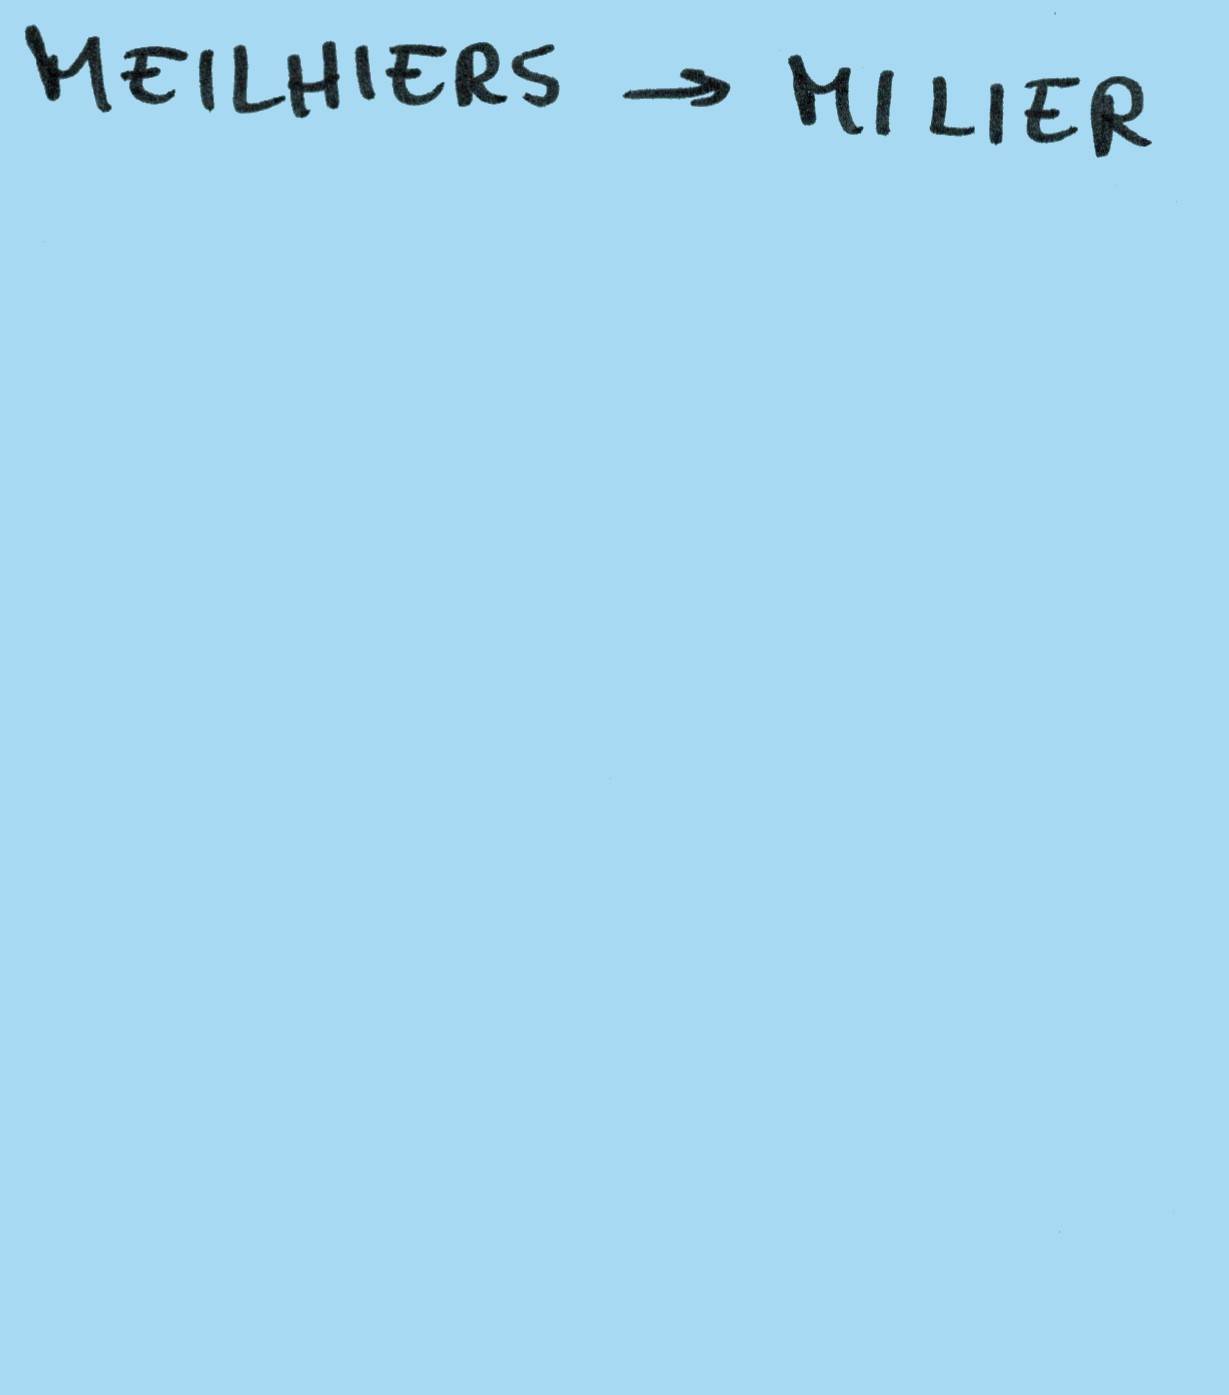 MEILHIERS → MILIER